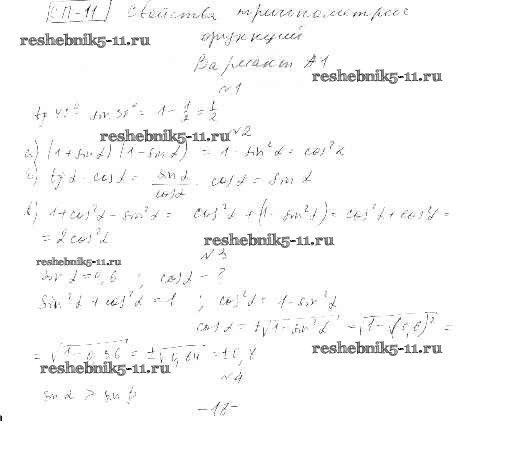 СП-11 Свойства тригонометрич
reshebnik5-11.ru
функций
Вариант А1
reshebnik5-11.ru
№1
tg 45° sin 30° = 1 - 1/2 = 1/2
reshebnik5-11.ru
№2
а) (1+sin α) (1-sin α) = 1 - sin²α = cos²α
б) tg α · cos α = sin α/cos α · cos α = sin α
в) 1+cos²α - sin²α = cos²α + (1 - sin²α) = cos²α + cos²α =
= 2cos²α
reshebnik5-11.ru
№3
reshebnik5-11.ru
sin α = 0,6 ; cos α - ?
sin²α + cos²α = 1 ; cos²α = 1 - sin²α
cos α = ±√1 - sin²α = √1 - (0,6)² =
= √1 - 0,36 = ±√0,64 = ±0,8
reshebnik5-11.ru
reshebnik5-11.ru
№4
sin α > sin β
-18-